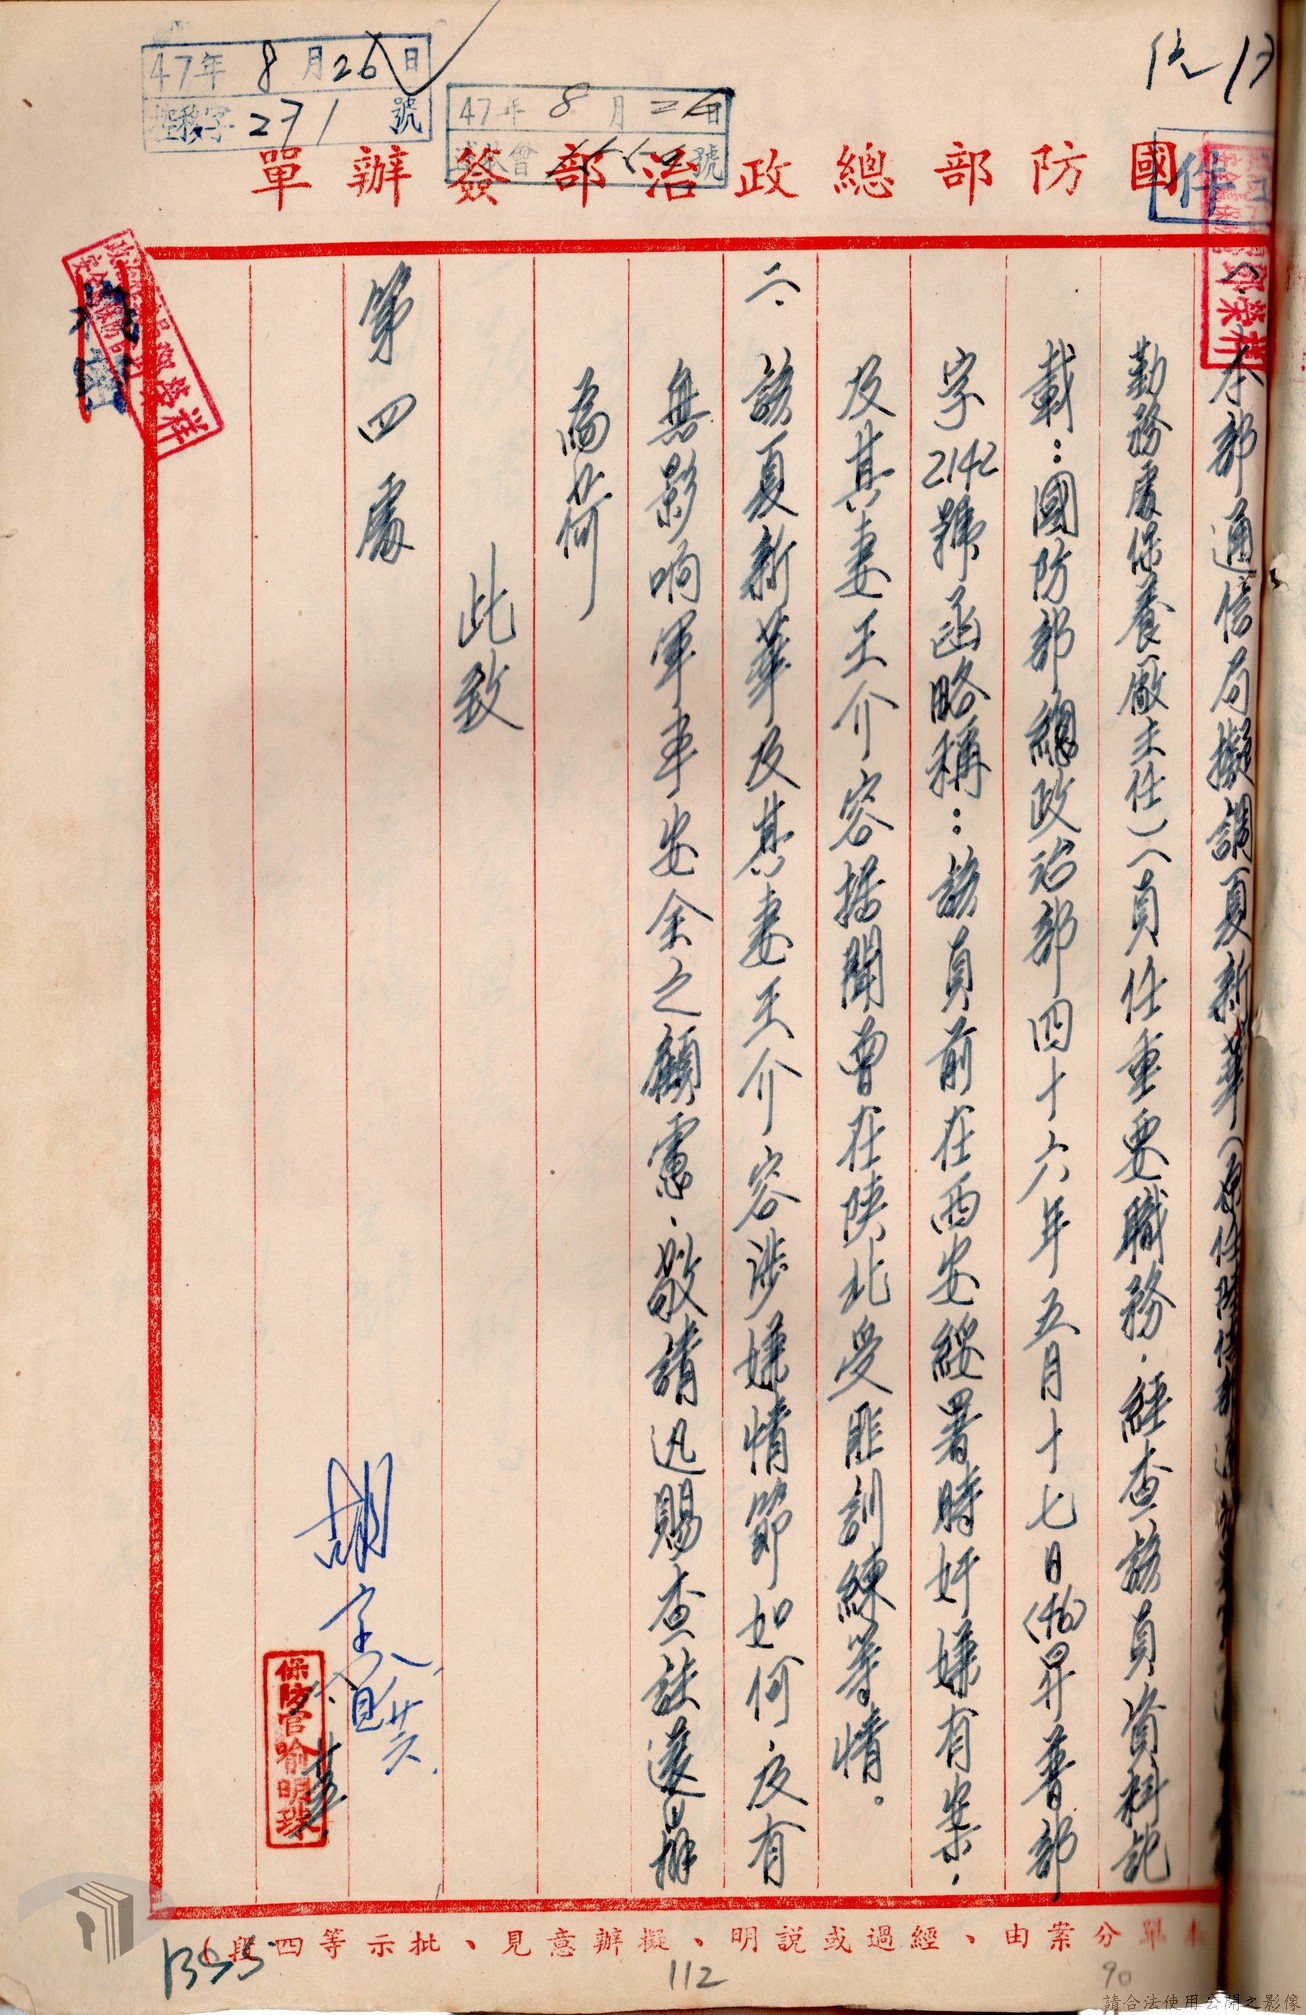 47年8月26日
271號
47年8月26日
國防部總政治部簽辦單
件
本部通信局擬調夏新華(原任陸供部通
勤務處保養廠主任)一員任重要職務.經查該員資料記
載:國防部總政治部四十六年五月十七日(46)昇普部
字2142號函略稱:該員前在西安綏署時奸嫌有案.
及其妻王介容據聞曾在陝北受匪訓練等情。
二、該夏新華及其妻王介容涉嫌情節如何.及有
無影响軍事安全之顧慮.敬請迅賜查註還辦
為荷
此致
第四處
機密
保防官喻明珠
本單分案由、經過或説明、擬辦意見、批示等四段
1355
112
90
請合法使用公開之影像